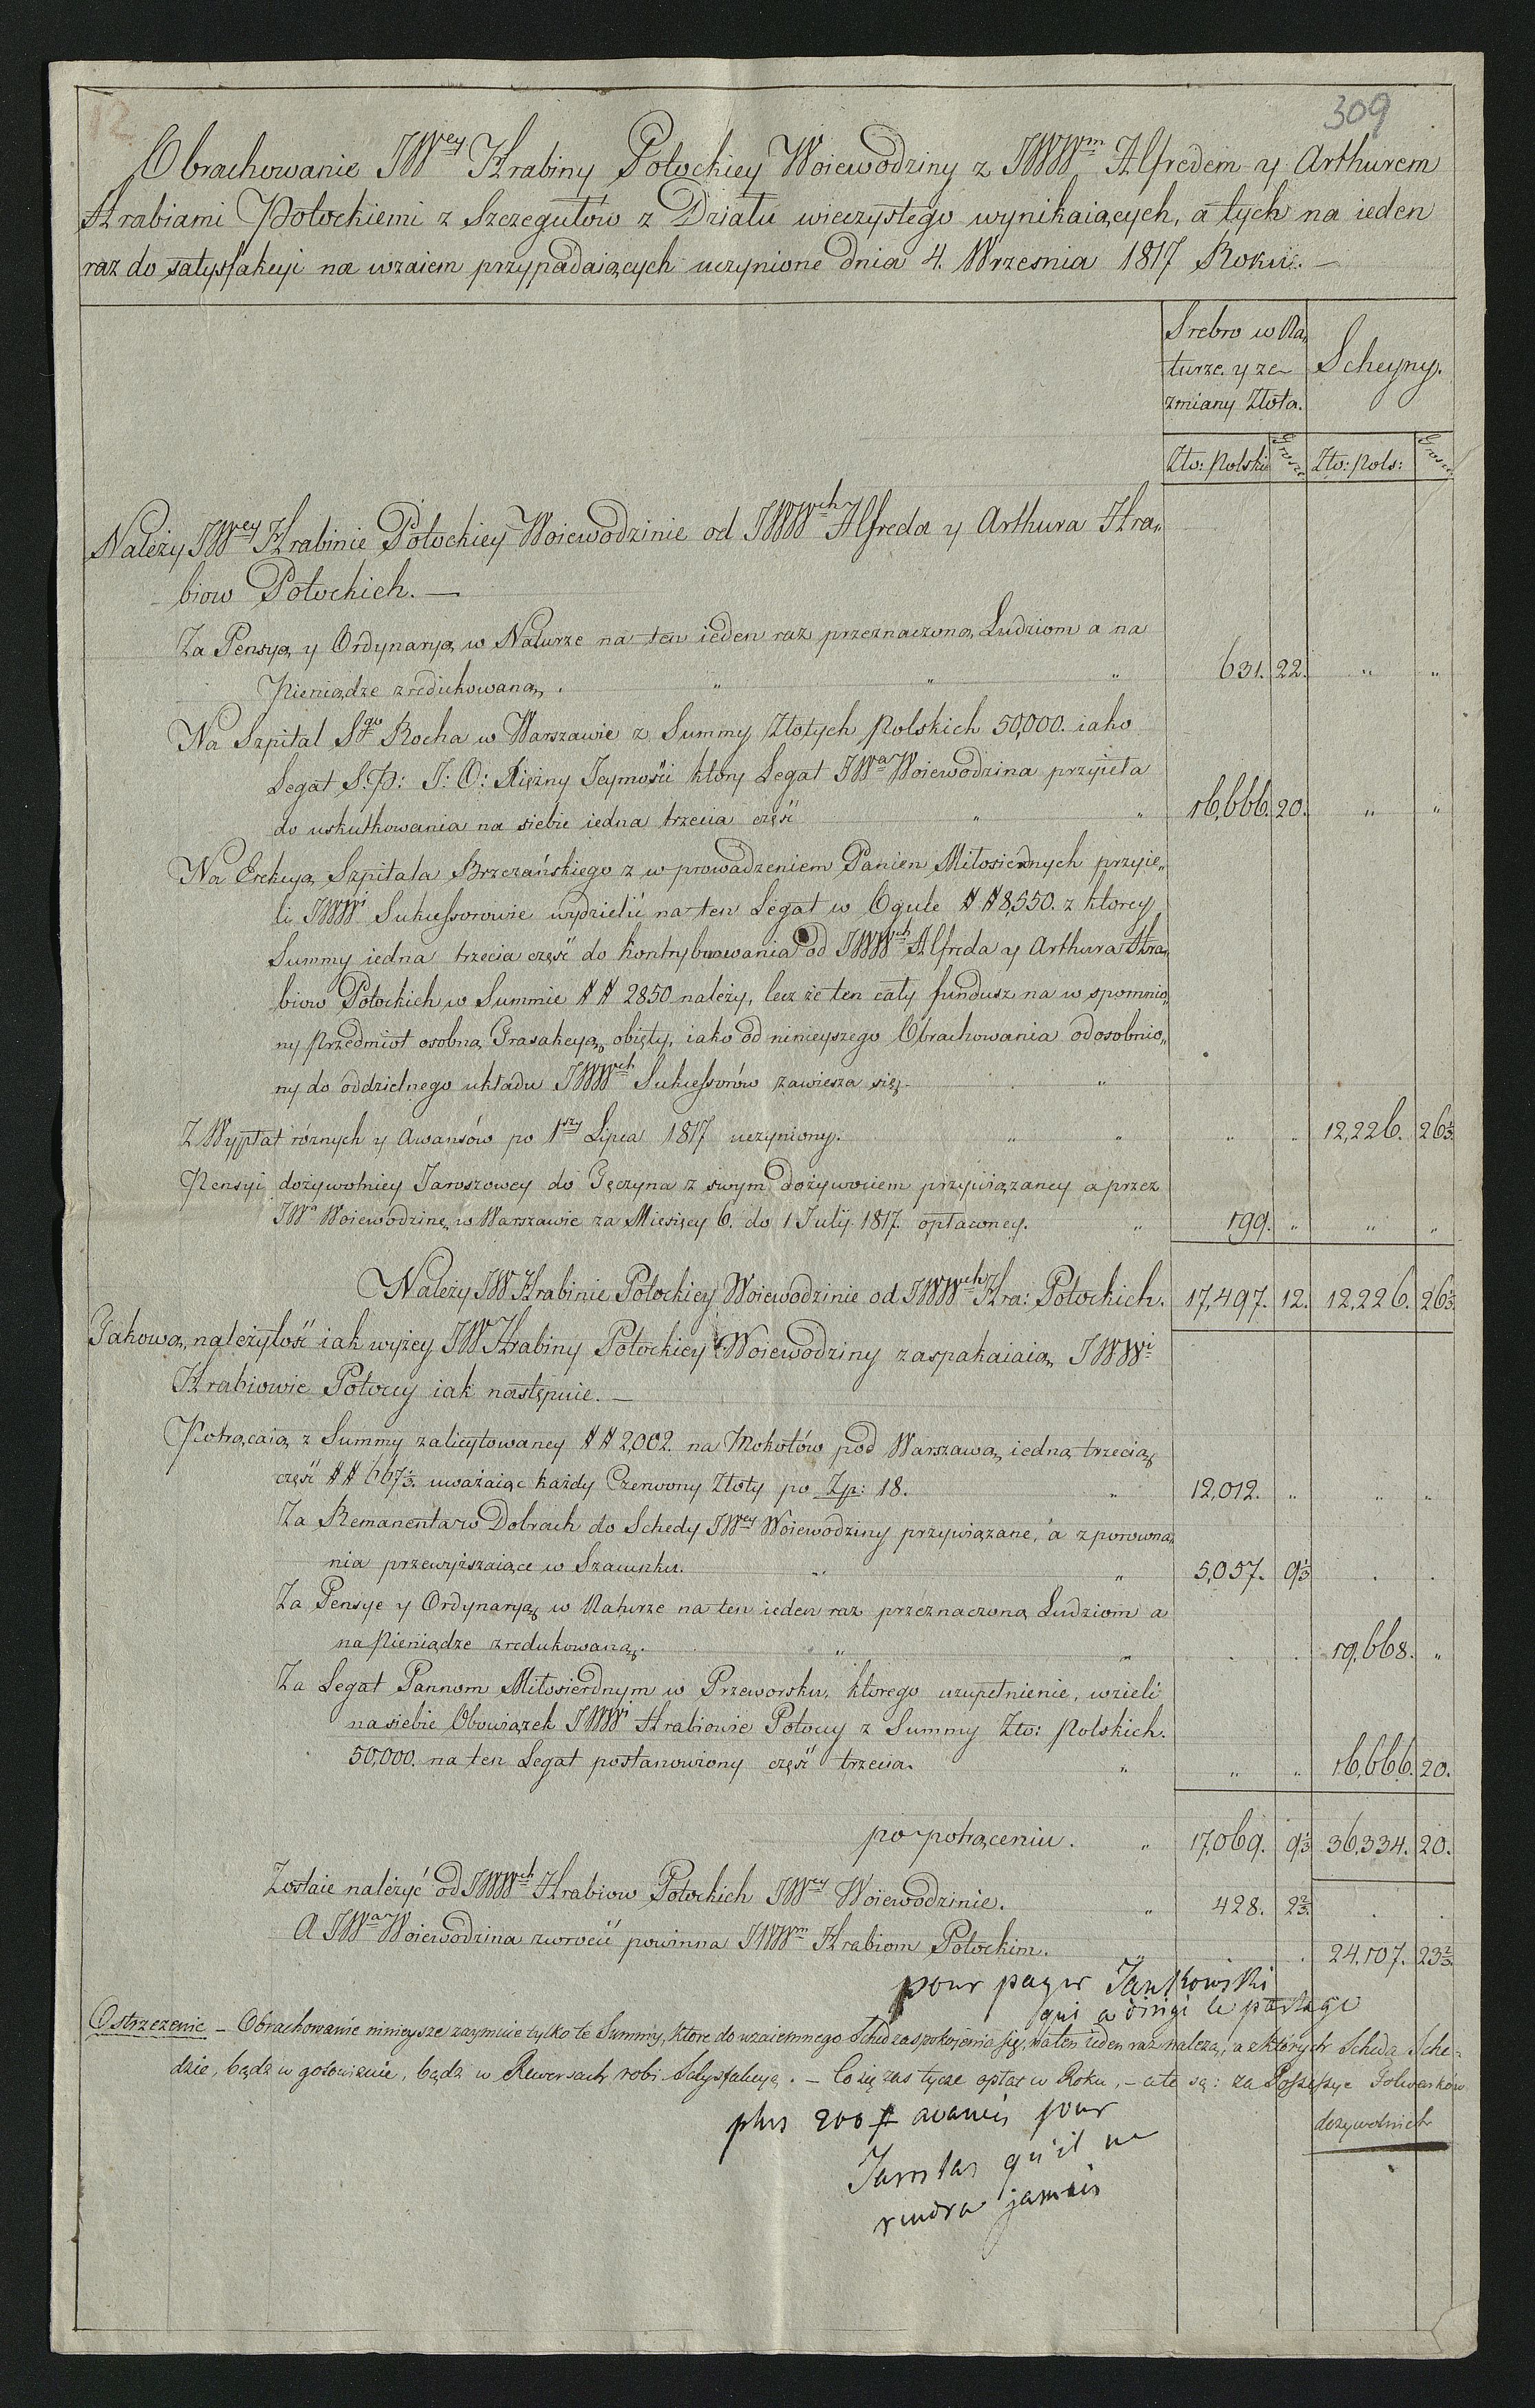 12
309
Obrachowanie JWey Hrabiny Potockiey Woiewodziny z JWWm Alfredem y Arthurem
Hrabiami Potockiemi z Szczegułow z Działu wieczystego wynikaiących, a tych na ieden
raz do satysfakcyi na wzaiem przypadaiących uczynione dnia 4. Wrzesnia 1817 Roku. —
Srebro w Na„
turze. y ze
zmiany Złota.
Scheyny.
Zło: Polskie
Grosze
Zło: Pols:
Grosze
Należy JWey Hrabinie Potockiey Woiewodzinie od JWWch Alfreda y Arthura Hra„
biow Potockich. —
Za Pensyą y Ordynaryą w Naturze na ten ieden raz przeznaczoną Ludziom a na
Pieniądze zredukowaną. „ „ „ 631. 22. „ „
Na Szpital Sgo Rocha w Warszawie z Summy Złotych Polskich 50,000. iako
Legat S:P: J: O: Xiężny Jeymości ktory Legat JWa Woiewodzina przyieła
do uskutkowania na siebie iedna trzecia część „ „ 16,666. 20. „ „
Na Erekcyą Szpitala Brzezańskiego z wprowadzeniem Panien Miłosiernych przyie„
li JWWi Sukcessorowie wydzielić na ten Legat w Ogule ## 8,550. z ktorey
Summy iedna trzecia część do kontrybuowania od JWWch Alfreda y Arthura Hra„
biow Potockich w Summie ## 2850 należy, lecz że ten cały fundusz na wspomnio„
ny Przedmiot osobną Transakcyą obięty, iako od ninieyszego Obrachowania odosobnio„
ny do oddzielnego układu JWWch Sukcessorów zawiesza się. „
Z Wypłat rożnych y Awansów po 1szy Lipca 1817 uczyniony. „ „ „ „ 12,226. 26⅓
Pensyi dożywotniey Jaroszowey do Tęczyna z swym dożywociem przywiązaney a przez
JWa Woiewodzinę w Warszawie za Miesięcy 6. do 1 July 1817. opłaconey. „ 199. „ „ „
Należy JW Hrabinie Potockiey Woiewodzinie od JWWch Hra: Potockich. 17,497. 12. 12,226. 26⅓
Takową należytość iak wyżey JW Hrabiny Potockiey Woiewodziny zaspakaiaią JWWi
Hrabiowie Potoccy iak następuie. —
Potrącaią z Summy zalicytowaney ## 2,002. na Mokotów pod Warszawą iedną trzecią
część ## 667⅓. uważaiąc każdy Czerwony Złoty po Zp: 18. „ 12,012. „ „ „
Za Remanenta w Dobrach do Schedy JWey Woiewodziny przywiązane, a z porowna„
nia przewyższaiące w Szacunku. „ „ 5,057. 9⅓ . .
Za Pensye y Ordynaryą w Naturze na ten ieden raz przeznaczoną Ludziom a
na Pieniądze zredukowaną. „ „ . . 19,668. „
Za Legat Pannom Miłosierdnym w Przeworsku, ktorego uzupełnienie, wzieli
na siebie Obowiązek JWWi Hrabiowie Potoccy z Summy Zło: Polskich.
50,000. na ten Legat postanowiony część trzecia. „ „ „ 16,666. 20.
po potrąceniu. „ 17,069. 9⅓ 36,334. 20.
Zostaie należyć od JWWch Hrabiow Potockich JWey Woiewodzinie. „ 428. 2⅔. . .
A JWa Woiewodzina zwrocić powinna JWWm Hrabiom Potockim. . 24,107. 23⅔
pour payer Jankowiski
qui a dirigé le partage
Ostrzezenie — Obrachowanie ninieysze zaymuie tylko te Summy, ktore do wzaiemnego Sched zaspokojenia się, na ten ieden raz należą, a z których Scheda Sche=
dzie, bądź w gotowiznie, bądź w Rewersach robi Satysfakcyą. — Co się zas tycze opłat w Roku, — a te są: za Possessye Folwarków
dożywotnich
plus 200 # avancés pour
qu'il ne
rendra jamais